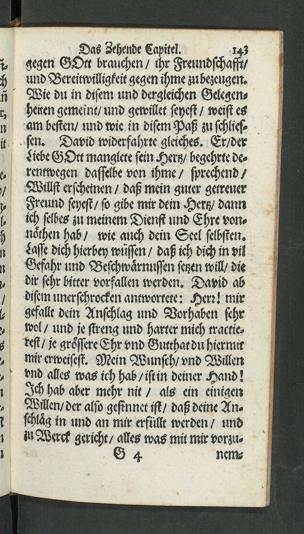 Das Zehende Capitel. 143
gegen GOtt brauchen / ihr Freundschafft /
und Bereitwilligkeit gegen ihme zu bezeugen.
Wie du in disem und dergleichen Gelegen-
heiten gemeint / und gewillet seyest / weist es
am besten / und wie in disem Paß zu schlies-
sen. David widerfahrte gleiches. Er / der
Liebe GOtt manglete sein Hertz / begehrte de-
rentwegen dasselbe von ihme / sprechend /
Willst erscheinen / daß mein guter getreuer
Freund seyest / so gibe mir dein Hertz / dann
ich selbes zu meinem Dienst und Ehre von-
nöthen hab / wie auch dein Seel selbsten.
Lasse dich hierbey wüssen / daß ich dich in vil
Gefahr und Beschwärnussen setzen will / die
dir sehr bitter vorfallen werden. David ab
disem unerschrocken antwortete: Herr! mir
gefallt dein Anschlag und Vorhaben sehr
wol / und je streng und harter mich tractie-
rest / je grössere Ehr vnd Gutthat du hiermit
mir erweisest. Mein Wunsch / vnd Willen
vnd alles was ich hab / ist in deiner Hand!
Ich hab aber mehr nit / als ein einigen
Willen / der also gesinnet ist / daß deine An-
schläg in und an mir erfüllt werden / und
zu Werck gericht / alles was mit mir vorzu-
G 4 nem-